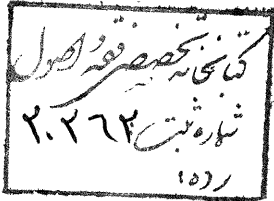 کتابخانه تخصصی فقه و اصول
شماره ثبت ۲۰۲۶۲
رده: